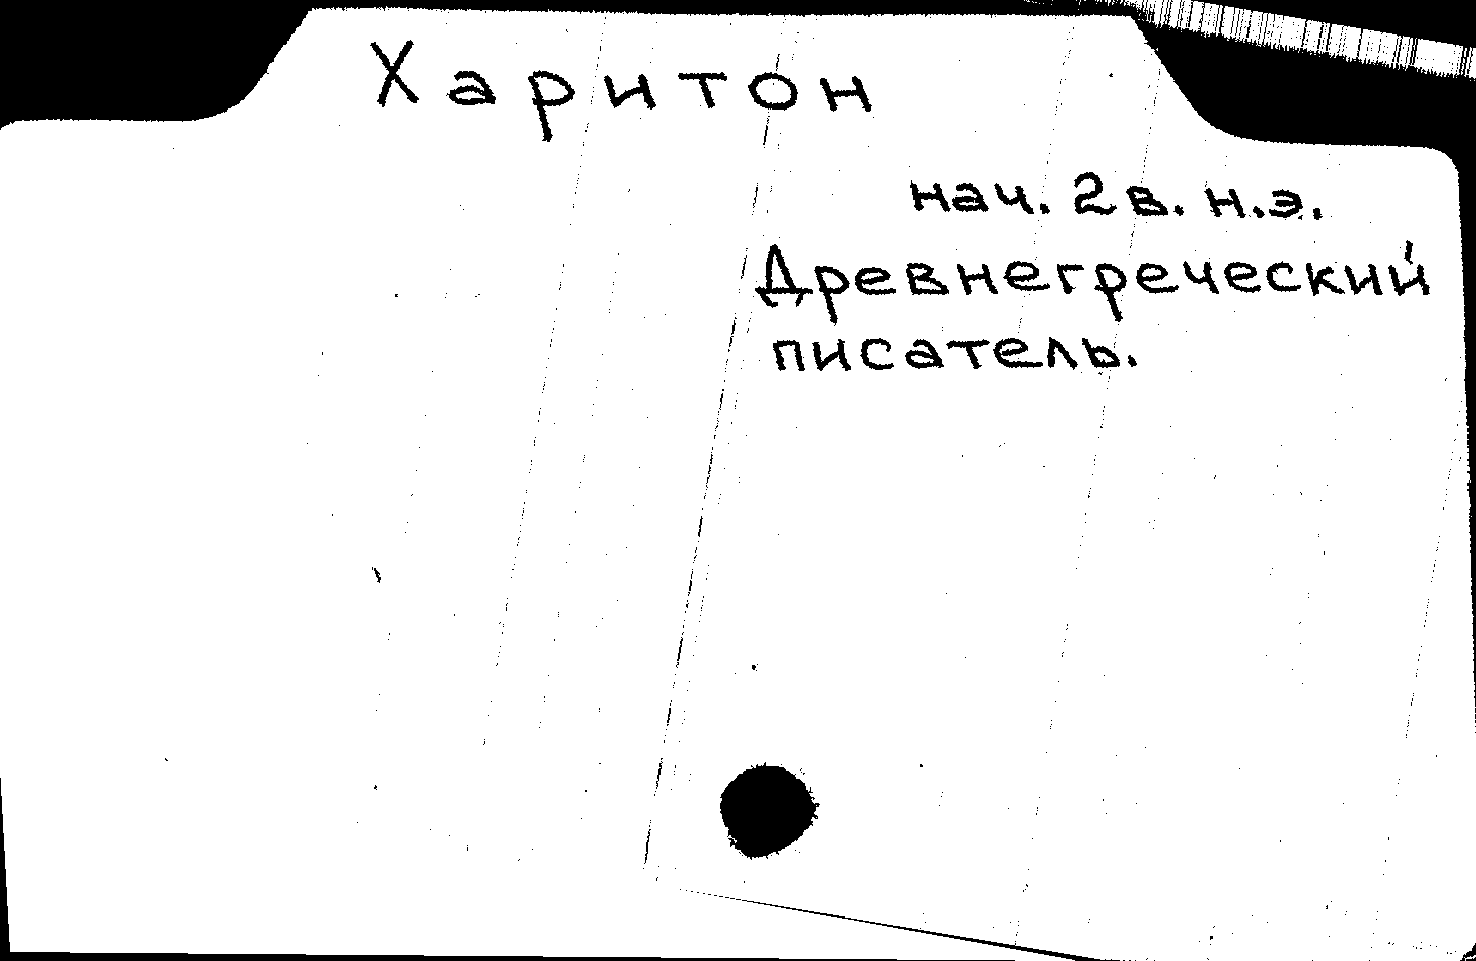 Харитон
нач. 2 в. н.э.
Древнегреческий
писатель.